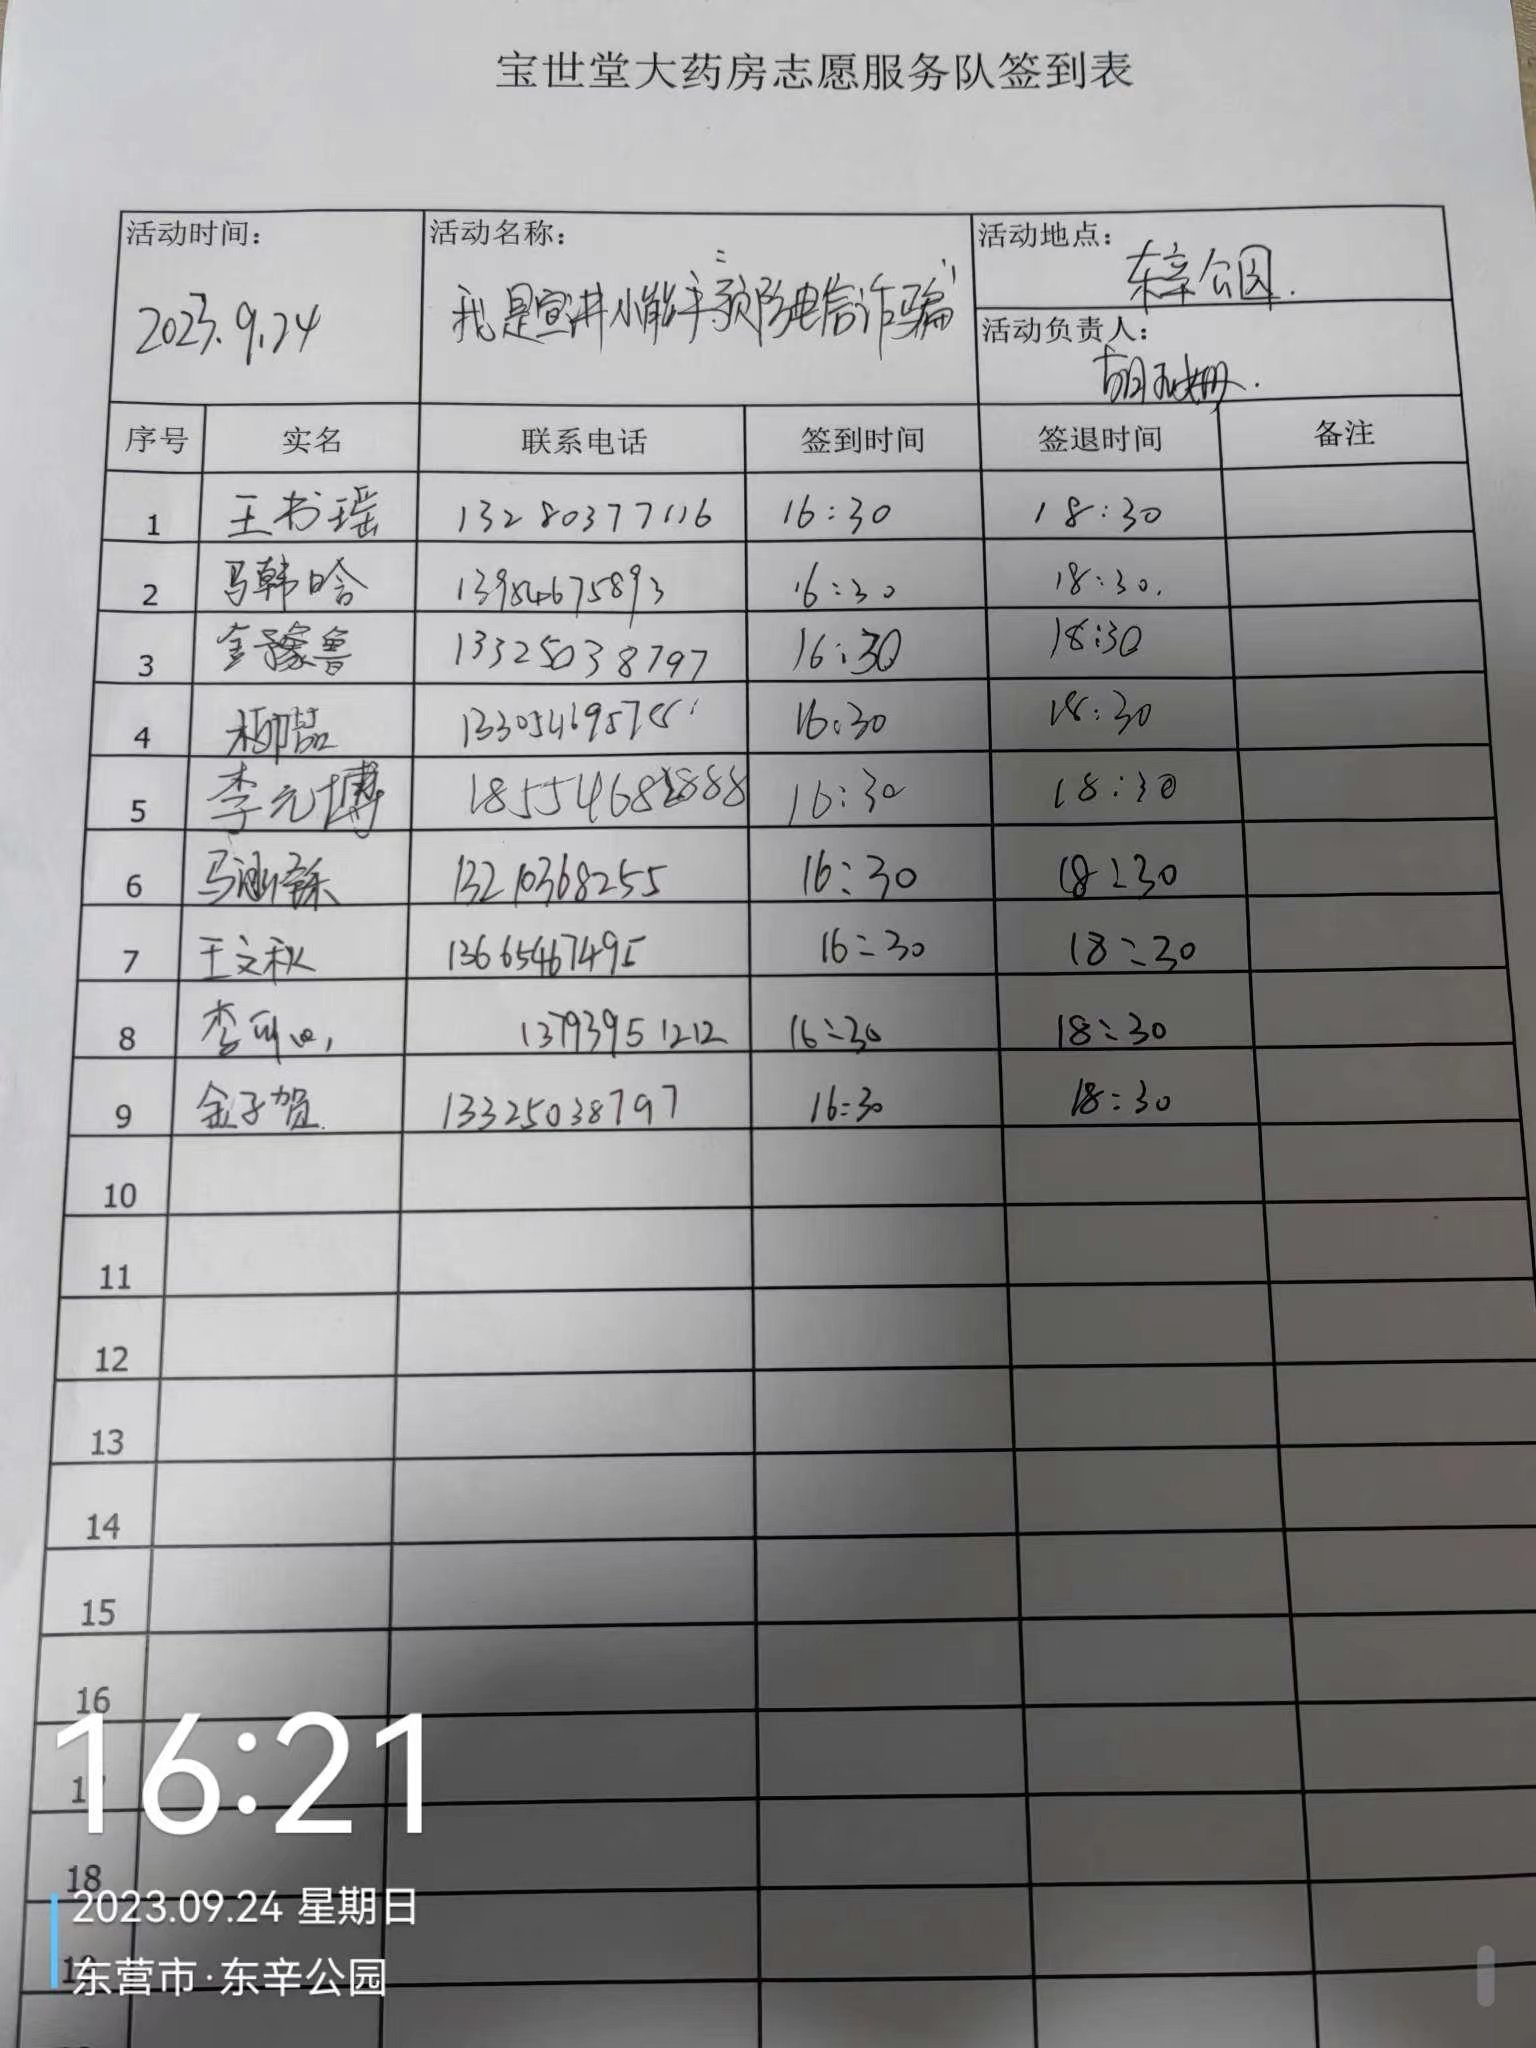 宝世堂大药房志愿服务队签到表
活动时间: 活动名称: 活动地点: 东辛公园.
2023.9.24 我是宣讲小能手预防电信诈骗 活动负责人:
序号 实名 联系电话 签到时间 签退时间 备注
1 王书瑶 13280377116 16:30 18:30
2 马韩晗 13954675893 16:30 18:30.
3 金豫鲁 13325038797 16:30 18:30
4 柳喆 16:30 18:30
5 李元博 16:30 18:30
6 13210368255 16:30 18:30
7 王文秋 13665467495 16:30 18:30
8 李 13793951212 16:30 18:30
9 金子贺 13325038797 16:30 18:30
10
11
12
13
14
15
16
17
18
19
16:21
2023.09.24 星期日
东营市·东辛公园